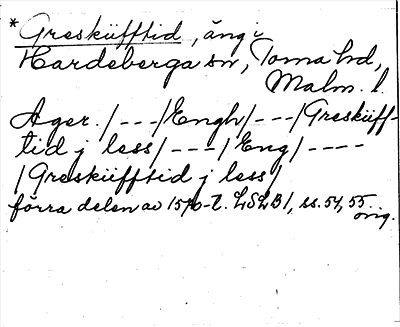 *Greskiifftid, äng i
Hardeberga sn, Torna hd,
Malm. l.
Ager. /---/Engh/---/Greskiiff-
tid j less/---/Eng/----
/Greskiifftid j less/
förra delen av 1570-t. LSLB1, ss. 54, 55.
orig.